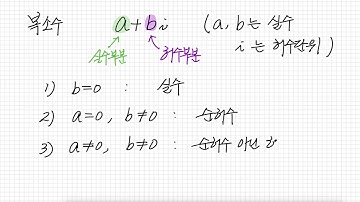 복소수 a+bi (a, b는 실수
실수부분 허수부분 i는 허수단위)
1) b=0 : 실수
2) a=0, b≠0 : 순허수
3) a≠0, b≠0 : 순허수 아닌